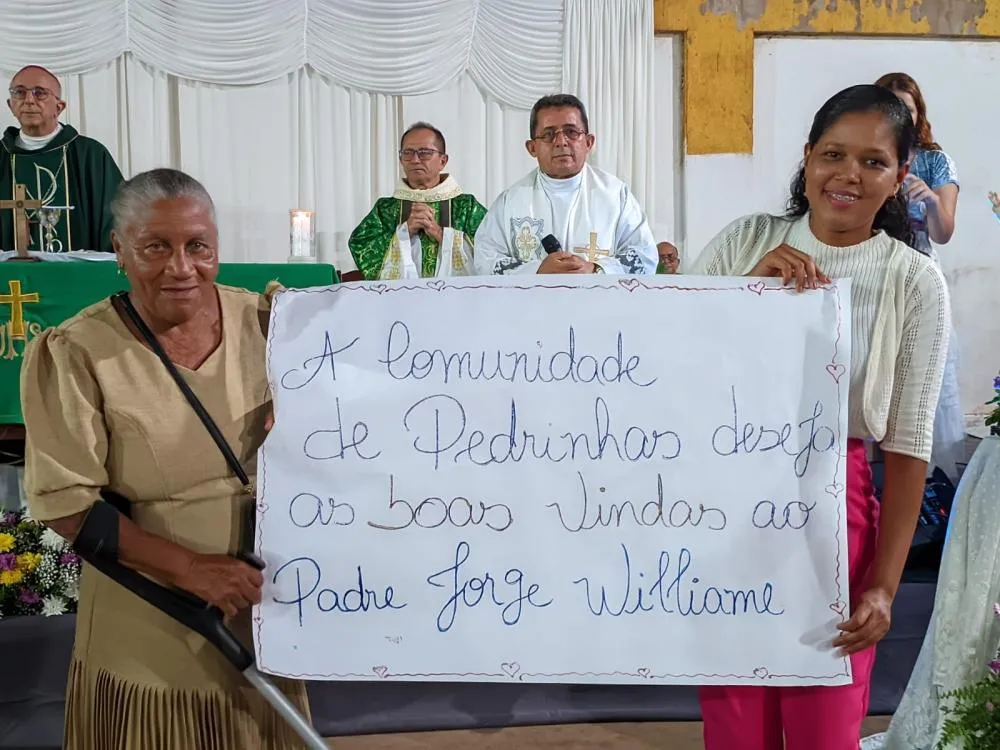 A Comunidade
de Pedrinhas deseja
as boas Vindas ao
Padre Jorge Williame